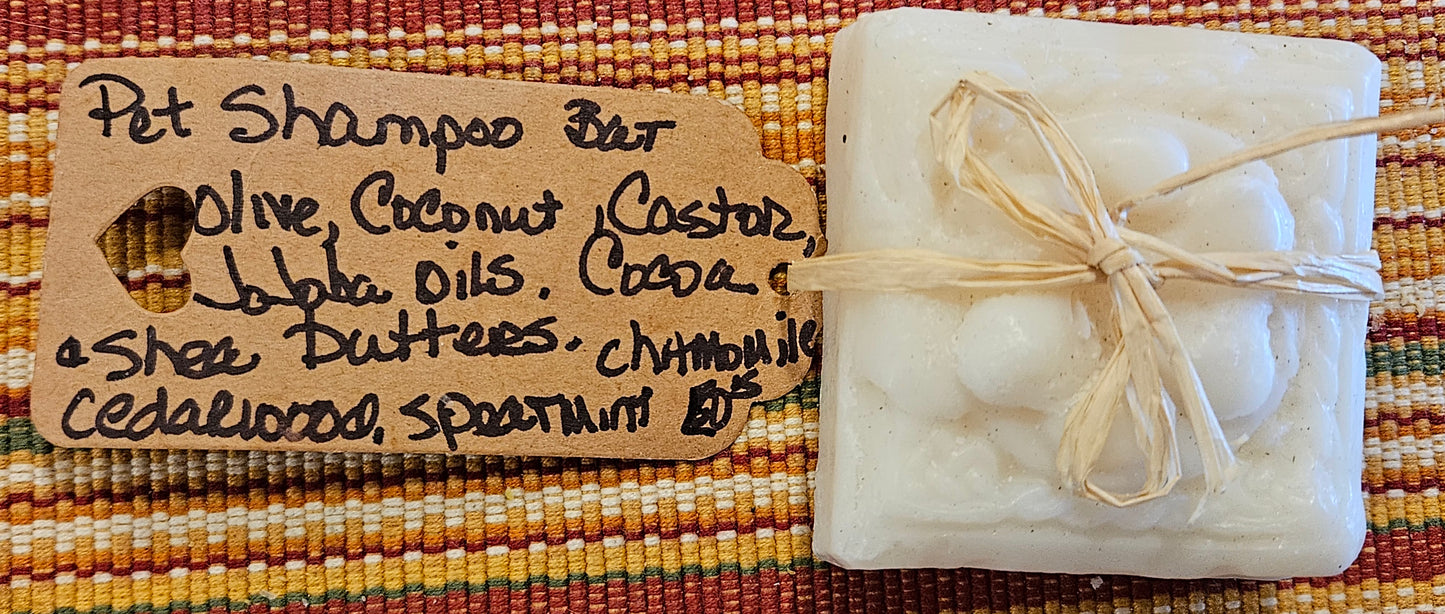 Pet Shampoo Bar
Olive, Coconut, Castor,
Jojoba oils. Cocoa
& Shea Butters. Chamomile
Cedarwood, Spearmint EO's